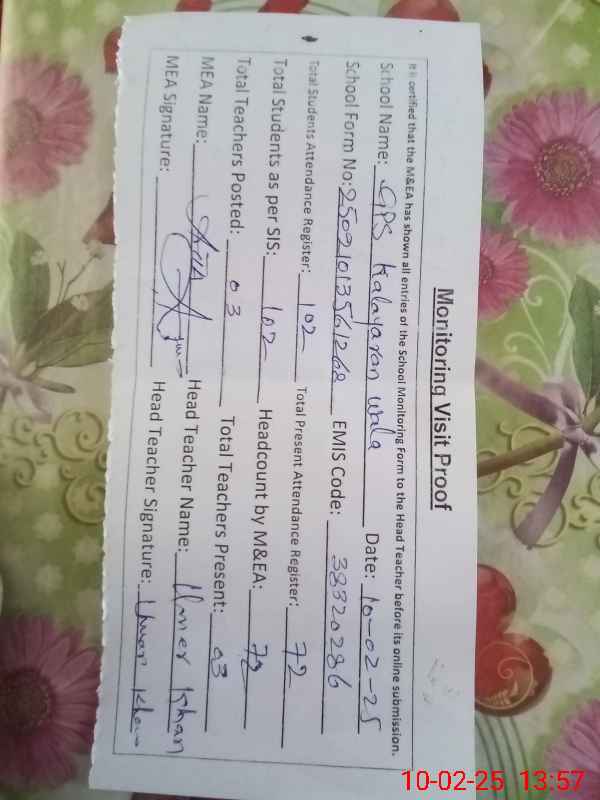 Monitoring Visit Proof
It is certified that the M&EA has shown all entries of the School Monitoring Form to the Head Teacher before its online submission.
School Name: GPS Kalayaran wala Date: 10-02-25
School Form No: 25021013561268 EMIS Code: 38320286
Total Students Attendance Register: 102 Total Present Attendance Register: 72
Total Students as per SIS: 102 Headcount by M&EA: 72
Total Teachers Posted: 03 Total Teachers Present: 03
MEA Name: Head Teacher Name: Umer Khan
MEA Signature: Head Teacher Signature: Umar Khan
10-02-25 13:57